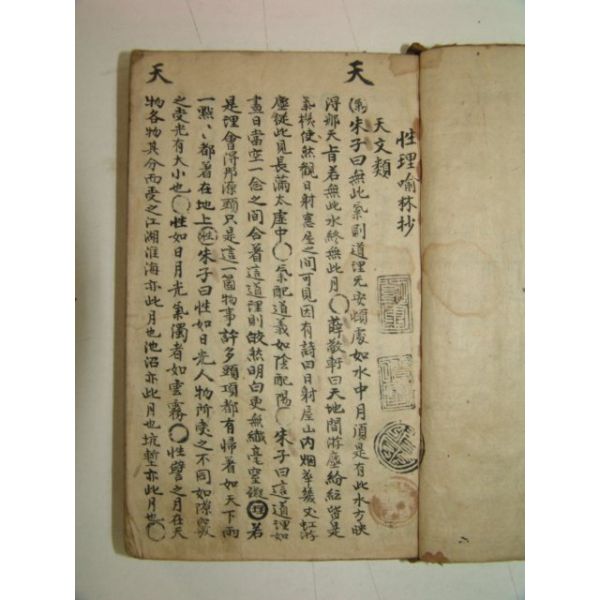 性理喻林抄
天文類
天
天
朱子曰無此氣則道理无安頓處如水中月須是有此水方映
得那天月若無此水終無此月〇薛敬軒曰天地間游塵紛紜皆是
氣機使然觀日射窓屋之間可見因有詩曰日射屋山內烟華
塵從此見長滿太虛中〇氣配道義如陰配陽〇朱子曰這道理如
晝日當空一念之間合著這道理則皎然明白更無纖毫窒礙理若
是理會得那源頭只是這一箇物事許多頭項都有歸著如天下雨
一點、都著在地上性朱子曰性如日光人物所受之不同如隙竅
之受光有大小也〇性如日月光氣濁者如雲霧〇性譬之月在天
物各物其分而受之江湖淮海亦此月也池沼亦此月也坑塹亦此月也〇